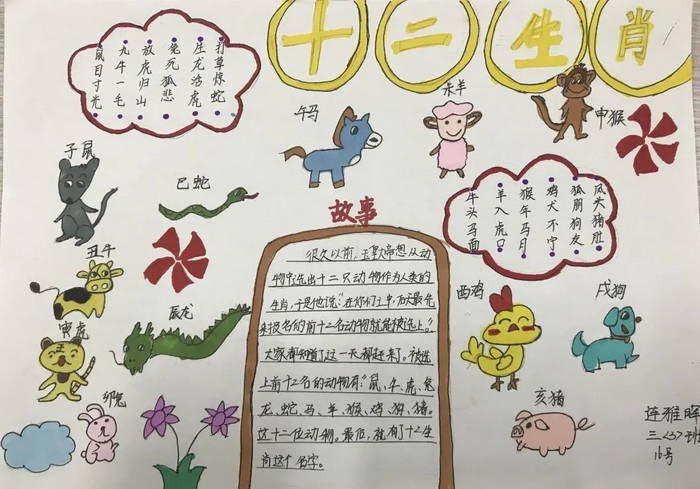 十二生肖
打草惊蛇
生龙活虎
兔死狐悲
放虎归山
九牛一毛
鼠目寸光
午马
未羊
申猴
子鼠
巳蛇
丑牛
辰龙
寅虎
卯兔
凤头猪肚
狐朋狗友
鸡犬不宁
猴年马月
羊入虎口
牛头马面
酉鸡
戌狗
亥猪
故事
很久以前，玉皇大帝想从动
物中选出十二只动物作为人类的
生肖，于是他说：
来报名的前十二名动物就能被选上。”
大家都知道了这一天都赶来了。被选
上前十二名的动物有：“鼠、牛、虎、兔
龙、蛇、马、羊、猴、鸡、狗、猪。
这十二位动物。最后，就有了十二生
肖这个名字。
连雅晖
三〈3〉班
16号